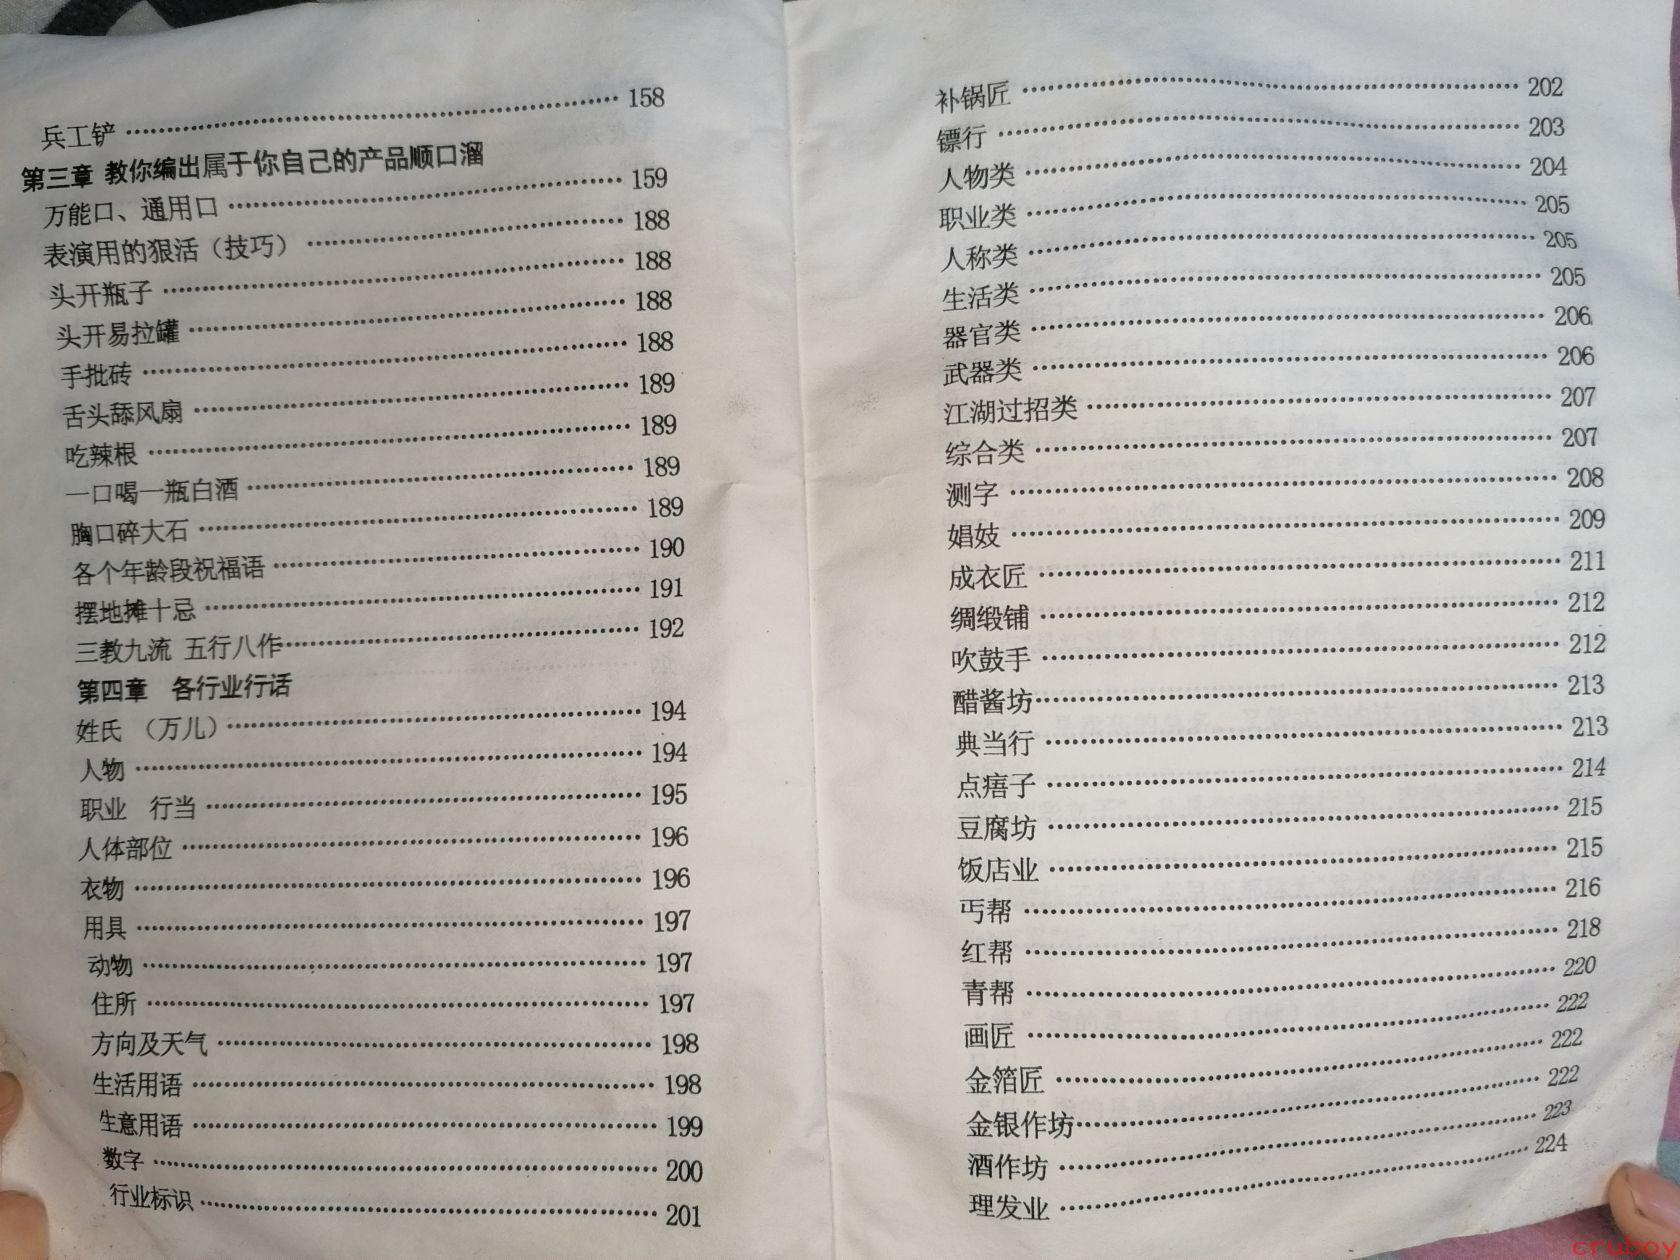 兵工铲 …… 158
第三章 教你编出属于你自己的产品顺口溜
万能口、通用口 …… 159
表演用的狠活（技巧） …… 188
头开瓶子 …… 188
头开易拉罐 …… 188
手批砖 …… 188
舌头舔风扇 …… 189
吃辣根 …… 189
一口喝一瓶白酒 …… 189
胸口碎大石 …… 189
各个年龄段祝福语 …… 190
摆地摊十忌 …… 191
三教九流 五行八作 …… 192
第四章 各行业行话
姓氏 （万儿） …… 194
人物 …… 194
职业 行当 …… 195
人体部位 …… 196
衣物 …… 196
用具 …… 197
动物 …… 197
住所 …… 197
方向及天气 …… 198
生活用语 …… 198
生意用语 …… 199
数字 …… 200
行业标识 …… 201
补锅匠 …… 202
镖行 …… 203
人物类 …… 204
职业类 …… 205
人称类 …… 205
生活类 …… 205
器官类 …… 206
武器类 …… 206
江湖过招类 …… 207
综合类 …… 207
测字 …… 208
娼妓 …… 209
成衣匠 …… 211
绸缎铺 …… 212
吹鼓手 …… 212
醋酱坊 …… 213
典当行 …… 213
点痦子 …… 214
豆腐坊 …… 215
饭店业 …… 215
丐帮 …… 216
红帮 …… 218
青帮 …… 220
画匠 …… 222
金箔匠 …… 222
金银作坊 …… 222
酒作坊 …… 223
理发业 …… 224
cruboy